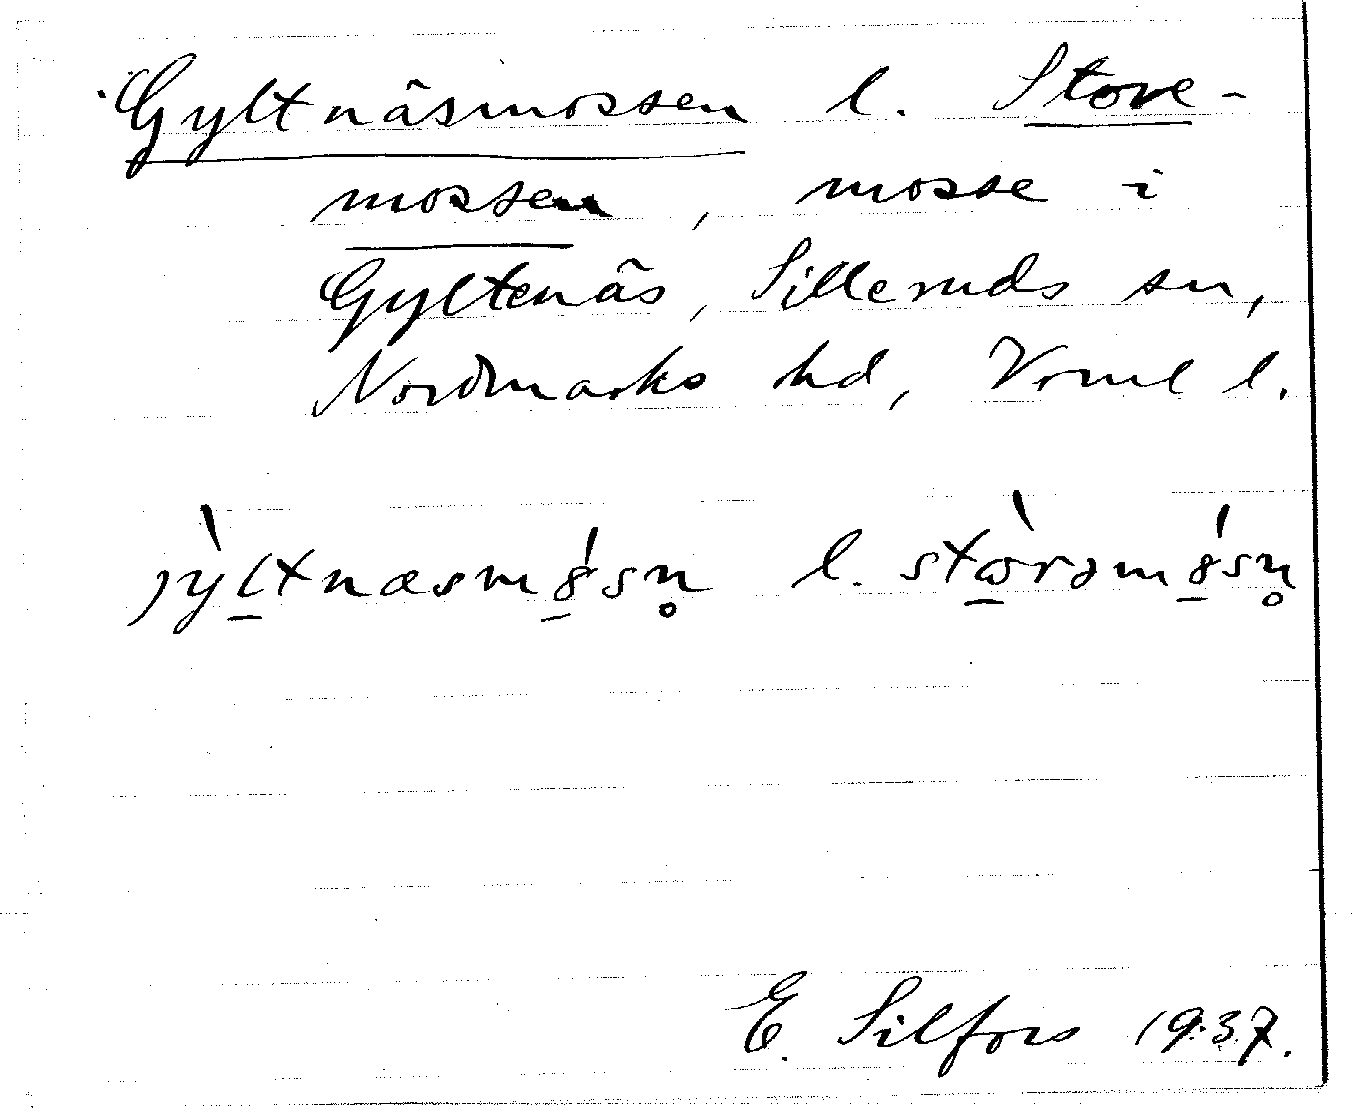 Gyltnäsmossen l. Store-
mossen, mosse i
Gyltenäs, Silleruds sn,
Nordmarks hd, Vrml l.
jỳltnæsmǿsn̥ l. stòrəmǿsn̥
E. Silfors 1937.